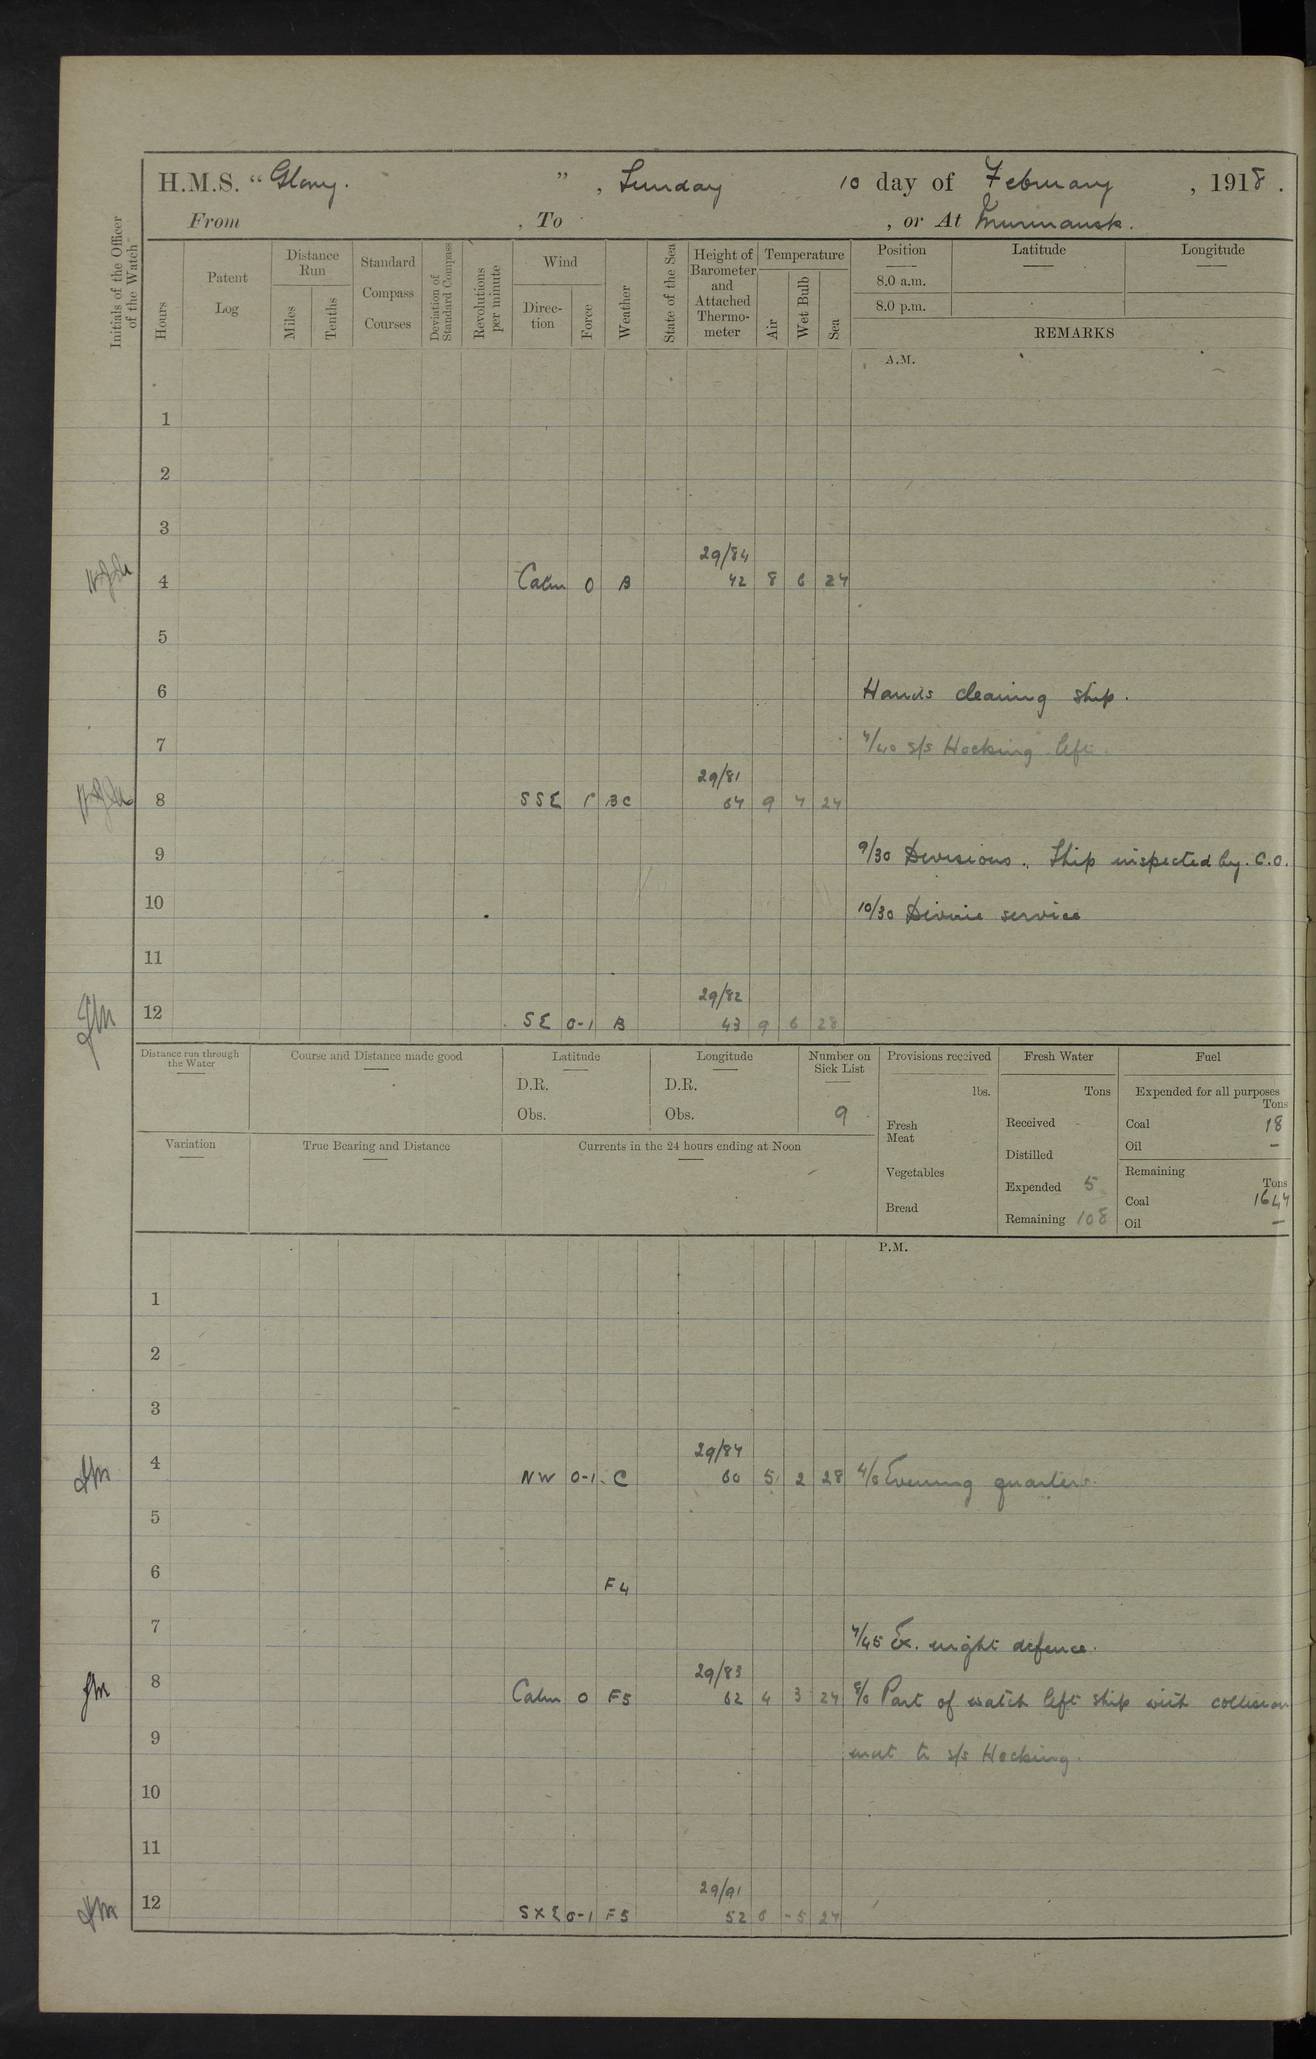 H.M.S. “ Glory. ” , Sunday 10 day of February , 1918 .
From , To , or At Murmansk.
Initials of the Officer of the Watch
Hours
Patent Log
Distance Run
Miles
Tenths
Standard Compass Courses
Deviation of Standard Compass
Revolutions per minute
Wind
Direc-tion
Force
Weather
State of the Sea
Height of Barometer and Attached Thermo-meter
Temperature
Air
Wet Bulb
Sea
Position
8.0 a.m.
8.0 p.m.
Latitude
Longitude
REMARKS
A.M.
1
2
3
29/84
4 Calm 0 B 42 8 6 27
5
6 Hands cleaning ship.
7 7/40 s/s Hocking left.
29/81
8 SSE 1 BC 64 9 7 27
9 9/30 Divisions. Ship inspected by. C.O.
10 10/30 Divine service
11
29/82
12 SE 0-1 B 43 9 6 28
Distance run through the Water
Course and Distance made good
Latitude
D.R.
Obs.
Longitude
D.R.
Obs.
Number on Sick List
9
Provisions received
lbs.
Fresh Meat
Vegetables
Bread
Fresh Water
Tons
Received -
Distilled
Expended 5
Remaining 108
Fuel
Expended for all purposes
Tons
Coal 18
Oil –
Remaining
Tons
Coal 1647
Oil –
Variation
True Bearing and Distance
Currents in the 24 hours ending at Noon
P.M.
1
2
3
29/87
4 NW 0-1 C 60 5 2 28 4/0 Evening quarters.
5
6 F4
7 7/45 Ex. night defence.
29/83
8 Calm 0 F5 62 4 3 27 8/0 Part of watch left ship with collision
9 mat to s/s Hocking.
10
11
29/91
12 SXE 0-1 F5 52 0 -5 27